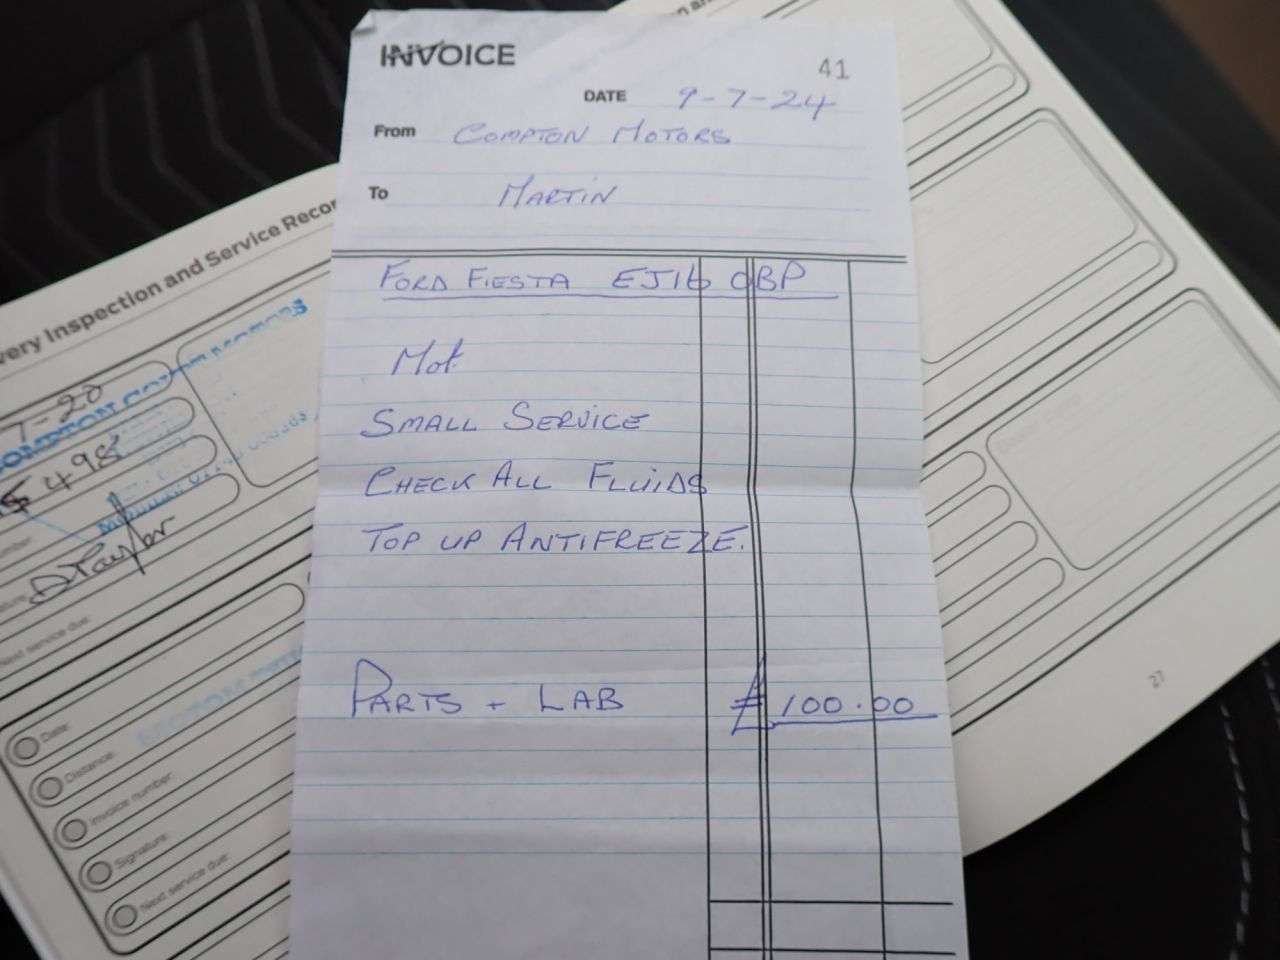 INVOICE
41
DATE 9-7-24
From COMPTON MOTORS
To MARTIN
FORD FIESTA EJ16 OBP
Mot
SMALL SERVICE
CHECK ALL FLUIDS
TOP UP ANTIFREEZE.
PARTS + LAB £100.00
very Inspection and Service Recor
7-20
498
DTaylor
Next service due:
Date:
Distance:
Invoice number:
Signature:
Next service due:
27